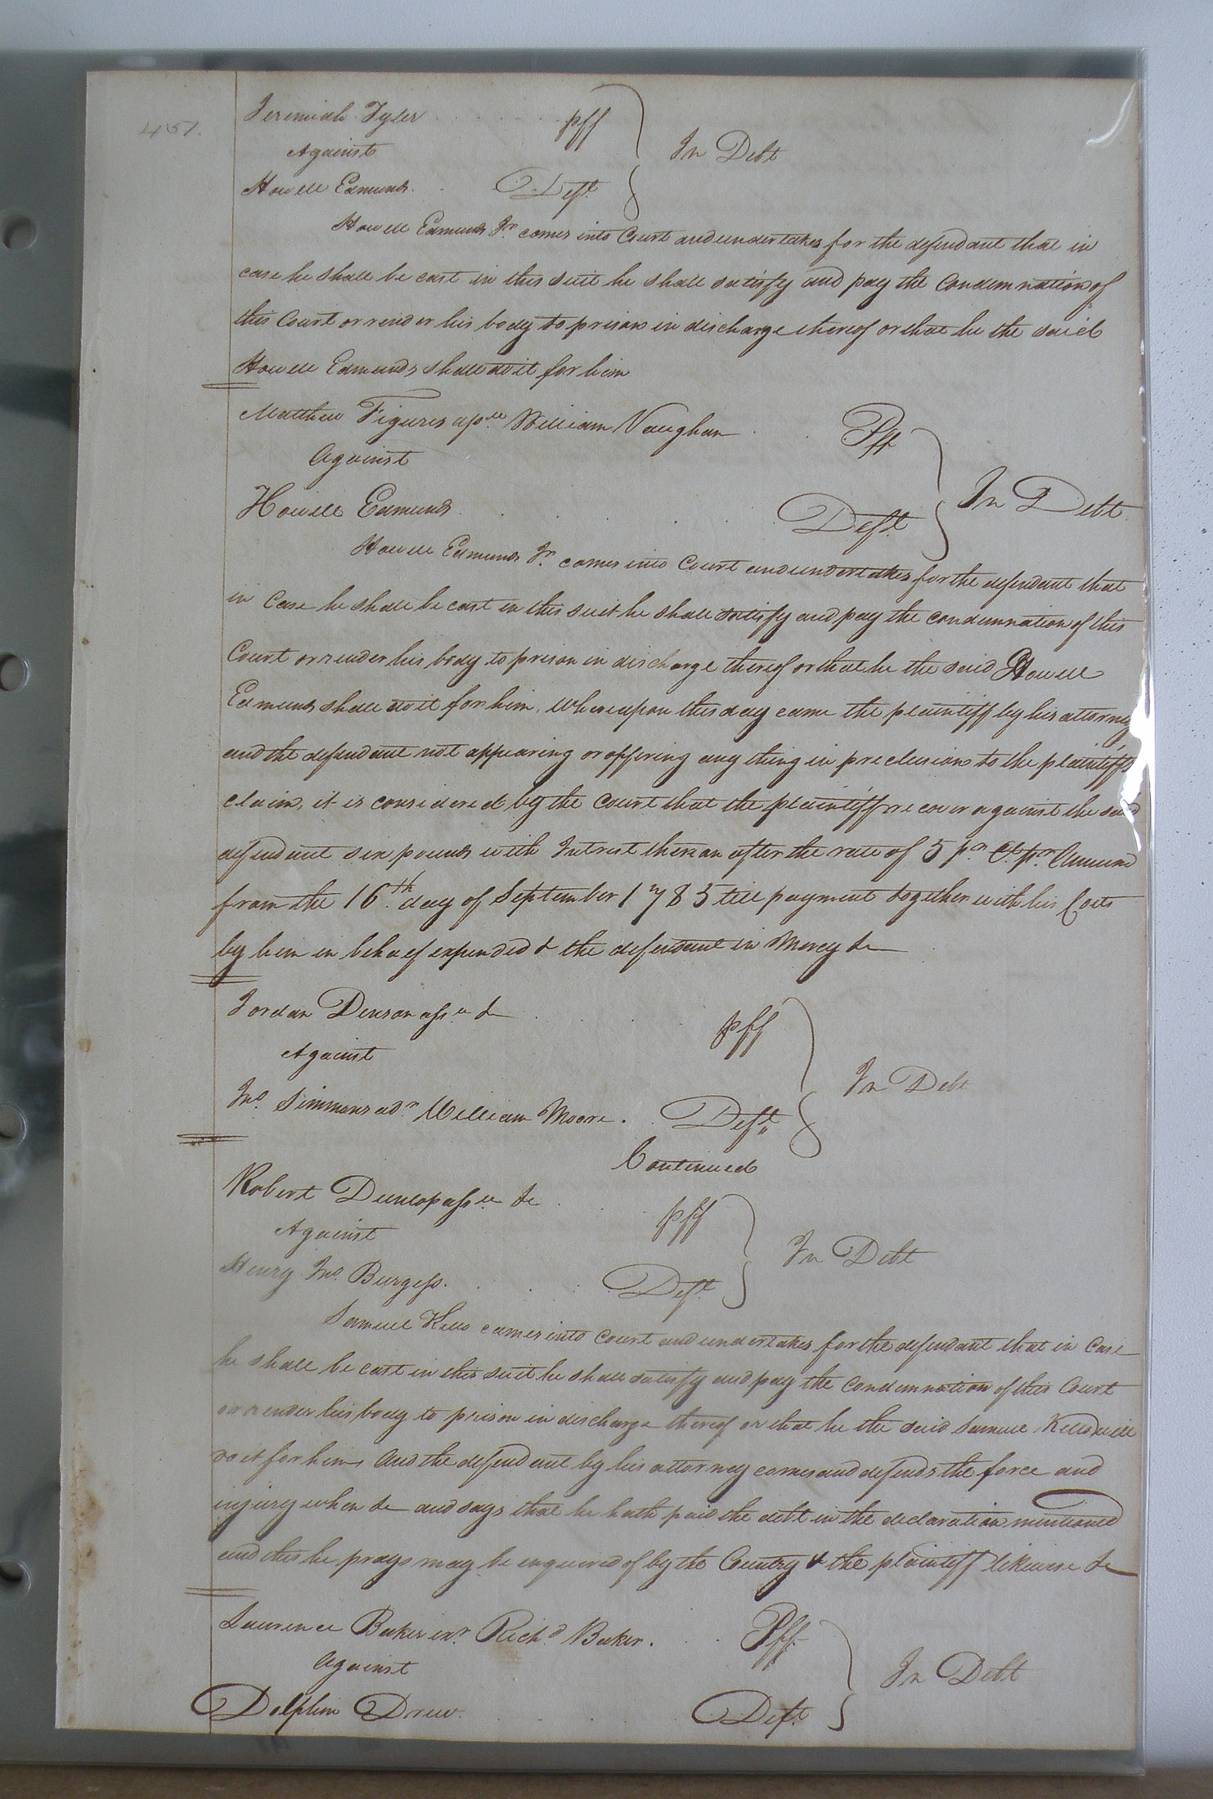 451.
Jeremiah Tyler pff
Against In Debt
Howell Edmunds Deft.
Howell Edmunds Jr. comes into Court and undertakes for the defendant that in
case he shall be cast in this suit he shall satisfy and pay the Condemnation of
this Court or render his body to prison in discharge thereof or that he the said
Howell Edmunds shall do it for him
Matthew Figures assee William Vaughan Pff
Against In Debt
Howell Edmunds Deft.
Howell Edmunds Jr. comes into Court and undertakes for the defendant that
in Case he shall be cast in this suit he shall satisfy and pay the condemnation of this
Court or render his body to prison in discharge thereof or that he the said Howell
Edmunds shall do it for him. Whereupon this day came the plaintiff by his attorney
and the defendant not appearing or offering any thing in preclusion to the plaintiffs
claim, it is considered by the Court that the plaintiff recover against the said
defendant six pounds with Intrest thereon after the rate of 5 pr. Ct. pr. Annum
from the 16th day of September 1785 till payment together with his Costs
by him in behalf expended & the defendant in Mercy &c
Jordan Denson assee &c pff
Against In Debt
Jno. Simmons adr. William Moore. Deft.
Continued
Robert Dunlop assee &c pff
Against In Debt
Henry Jno. Burgess. Deft.
Samuel Kello comes into Court and undertakes for the defendant that in Case
he shall be cast in this suit he shall satisfy and pay the Condemnation of this Court
or render his body to prison in discharge thereof or that he the said Samuel Kello will
do it for him And the defendant by his attorney comes and defends the force and
injury when &c and says that he hath paid the debt in the declaration mentioned
and this he prays may be enquired of by the Country & the plaintiff likewise &c
Lawrence Baker exr. Richd. Baker. Pff.
Against In Debt
Dolphin Drew. Deft.